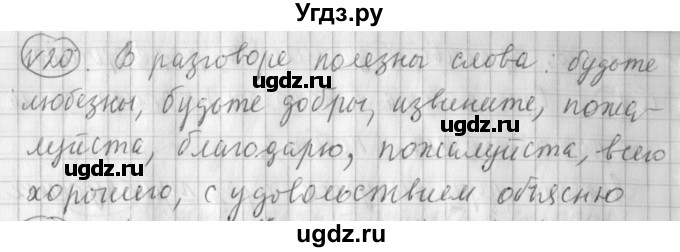 Угдз.ру
№20. В разговоре полезны слова: будьте
любезны, будьте добры, извините, пожа-
луйста, благодарю, пожалуйста, всего
хорошего, с удовольствием объясню
ugdz.ru ugdz.ru
ugdz.ru
ugdz.ru ugdz.ru
ugdz.ru